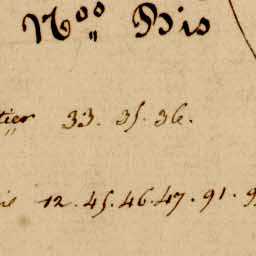 Nos Bis
tier 33. 35. 36.
12. 45. 46. 47. 91.